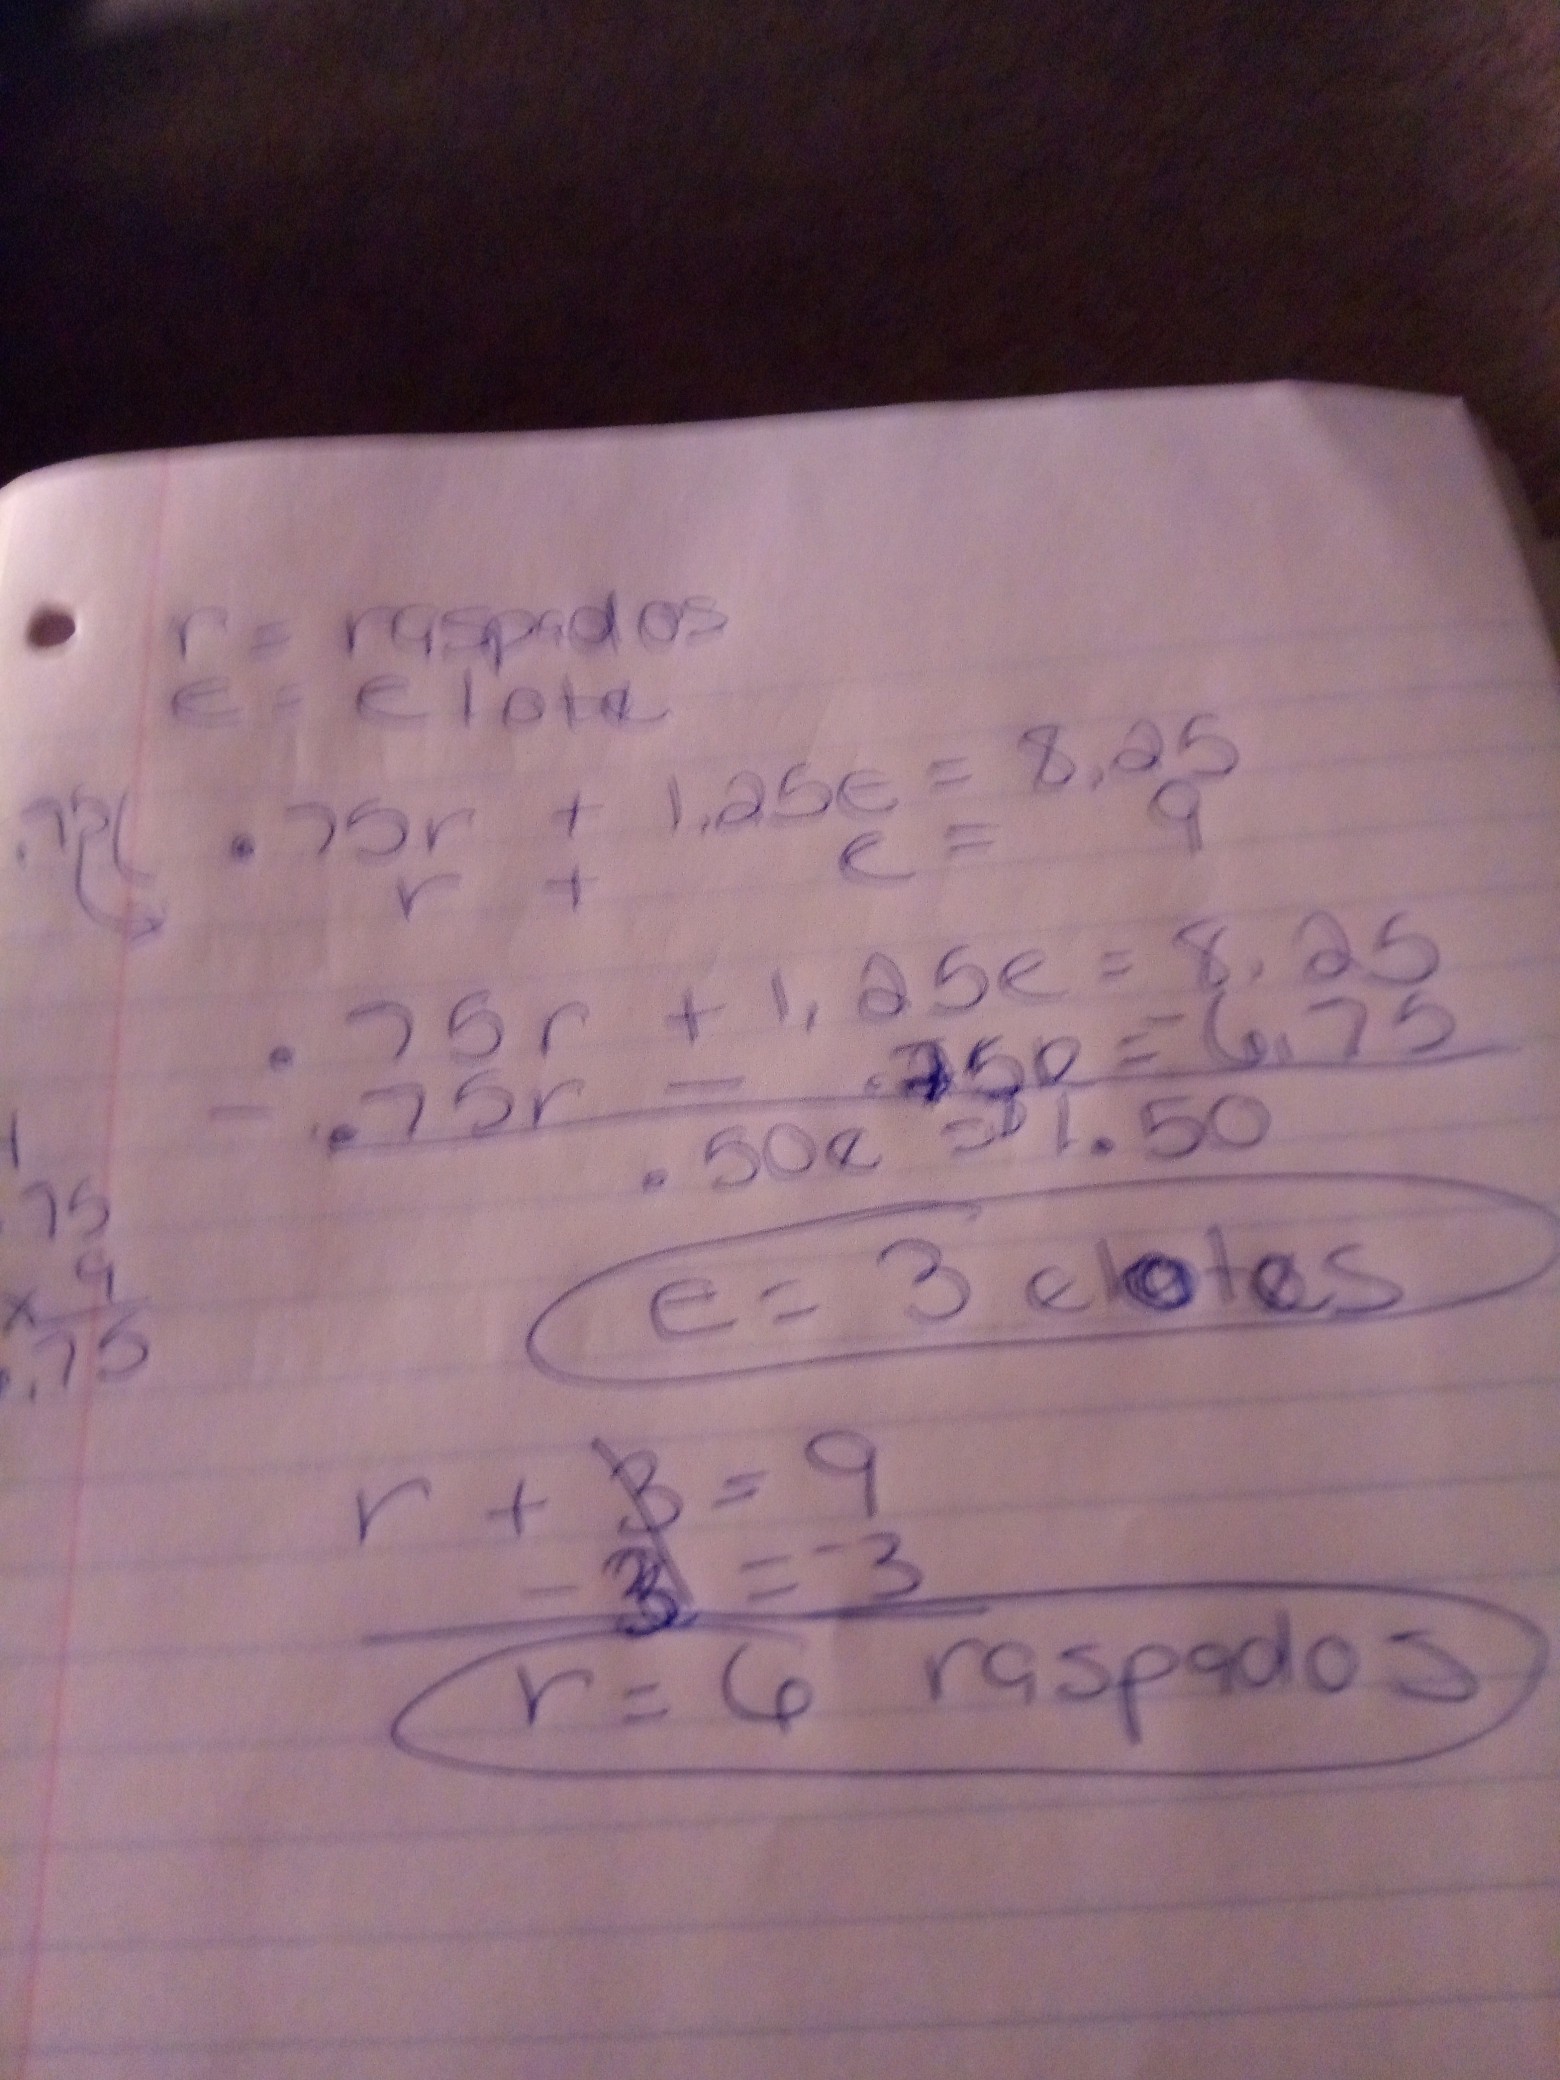 r = raspados
e = elote
.75( .75r + 1.25e = 8.25
r + e = 9
.75r + 1.25e = 8.25
- .75r - .75e = -6.75
.50e = 1.50
e = 3 elotes
1
.75
x 9
.75
r + 3 = 9
- 3 = -3
r = 6 raspados